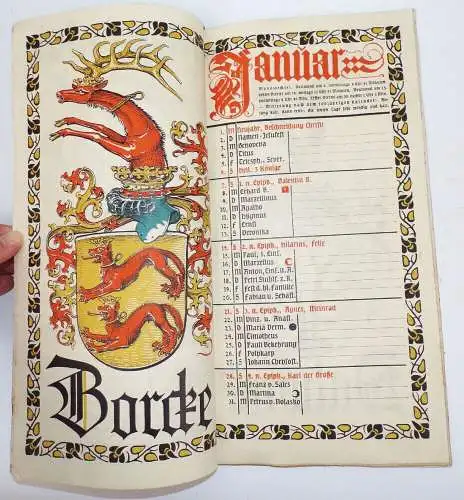 Borcke
Januar
1. M Neujahr, Beschneidung Christi
2. D Namen-Jesufest
3. M Genoveva
4. D Titus
5. F Telesph., Sever.
6. S Heil. 3 Könige
7. S 1. n. Epiph., Valentin B.
8. M Erhard B.
9. D Marzellinus
10. M Agatho
11. D Hyginus
12. F Ernst
13. S Veronika
14. S 2. n. Epiph., Hilarius, Felix
15. M Paul, 1. Einf.
16. D Marzellus
17. M Anton, Einf. u. A.
18. D Petri Stuhlf. z. R.
19. F Fest d. hl. Familie
20. S Fabian u. Sebast.
21. S 3. n. Epiph., Agnes, Meinrad
22. M Vinz. u. Anast.
23. D Mariä Verm.
24. M Timotheus
25. D Pauli Bekehrung
26. F Polykarp
27. S Johann Chrysost.
28. S 4. n. Epiph., Karl der Große
29. M Franz v. Sales
30. D Martina
31. M Petrus v. Nolasko